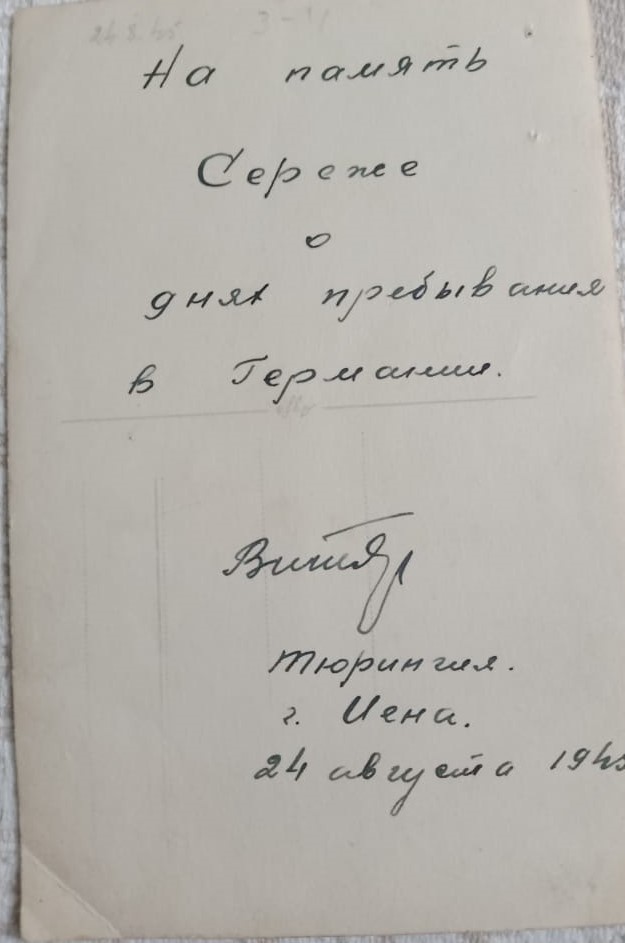 На память
Сереже
о
днях пребывания
в Германии.
Витя
Тюрингия.
г. Иена.
24 августа 1945